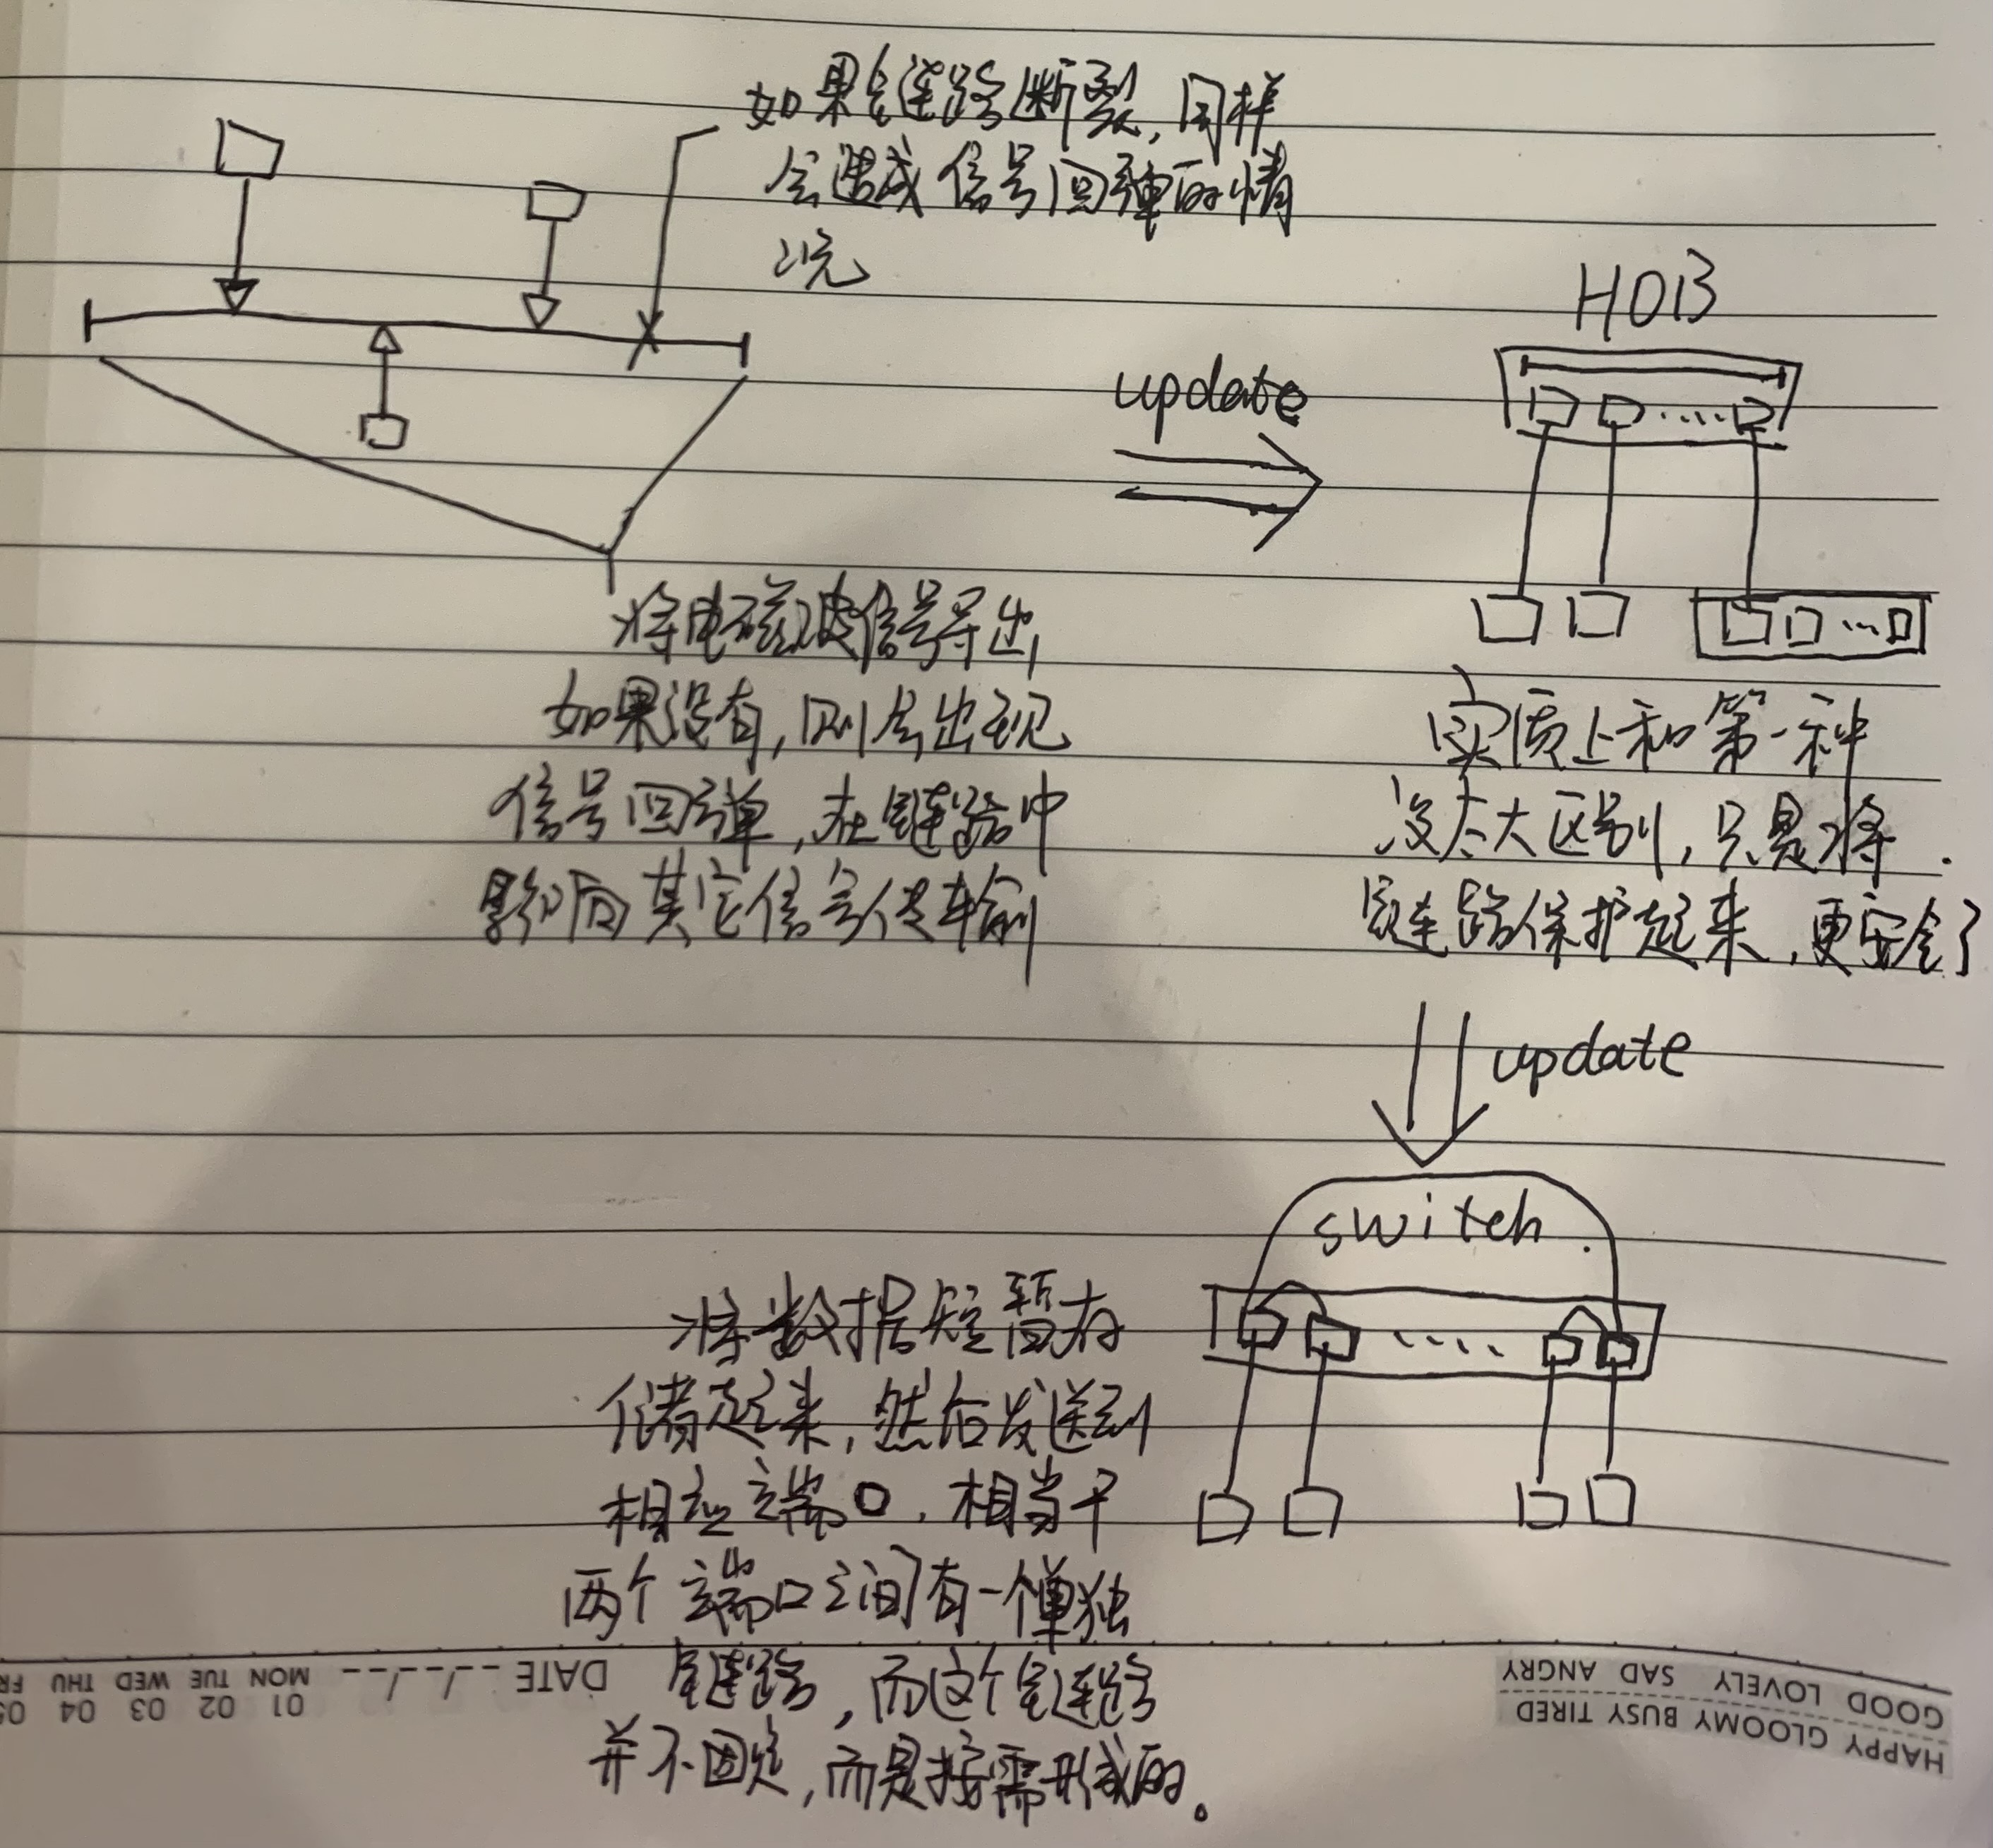 如果链路断裂,同样
会造成信号回弹的情
况
将电磁波信号导出,
如果没有,则会出现
信号回弹,在链路中
影响其它信号传输
update
HOB
实质上和第一种
没太大区别,只是将
链路保护起来,更安全了
update
switch
将数据短暂存
储起来,然后发送到
相应端口,相当于
两个端口之间有一个单独
链路,而这个链路
并不固定,而是按需形成的。
DATE --/--/--
MON TUE WED THU FR
01 02 03 04 05
GOOD LOVELY SAD ANGRY
HAPPY GLOOMY BUSY TIRED